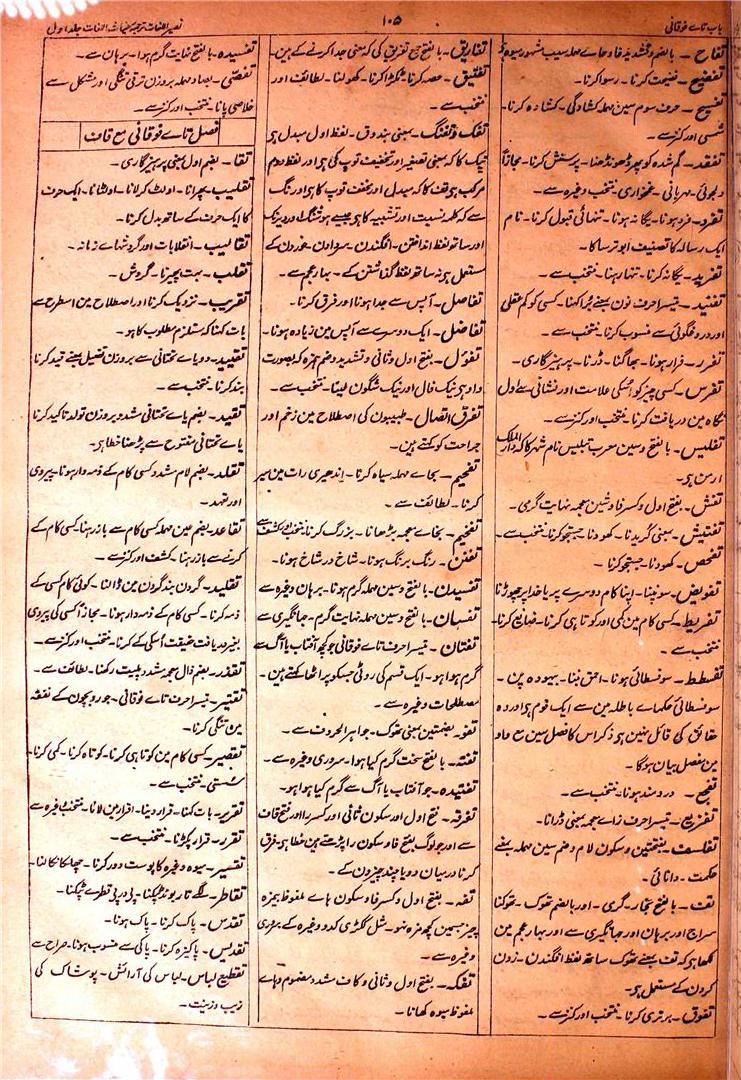 باب تاے فوقانی
۱۰۵
نصیر اللغات ترجمہ غیاث اللغات جلد اول
تفاح ۔ بالضم و تشدید فا و حاے مہملہ سیب مشہور میوہ ہے
تفضیح ۔ فضیحت کرنا ۔ رسوا کرنا ۔
تفسیح ۔ حرف سوم سین مہملہ کشادگی ۔ کشادہ کرنا ۔
شمسی اور کنز سے ۔
تفقد ۔ گم شدہ کو پھر ڈھونڈھنا ۔ پرسش کرنا ۔ مجازاً
دلجوئی ۔ مہربانی ۔ غمخواری ۔ منتخب وغیرہ سے ۔
تفرد ۔ فرد ہونا ۔ یگانہ ہونا ۔ تنہائی قبول کرنا ۔ نام
ایک رسالہ کا تصنیف ابو ترسا کا ۔
تفرید ۔ یگانہ کرنا ۔ تنہا رہنا ۔ منتخب سے ۔
تفنید ۔ تیسرا حرف نون یعنے بُرا کہنا ۔ کسی کو کم عقلی
اور دروغگوئی سے منسوب کرنا ۔ منتخب سے ۔
تفرر ۔ فرار ہونا ۔ بھاگنا ۔ ڈرنا ۔ پرہیزگاری ۔
تفرس ۔ کسی چیز کو اُسکی علامت اور نشانی سے دل
نگاہ مین دریافت کرنا ۔ منتخب اور کنز سے ۔
تفلیس ۔ بالفتح و سین معرب تپلیس نام شہر کا کہ دار الملک
ارمن ہی ۔
تفش ۔ بفتح اول و کسر فا و شین معجمہ نہایت گرمی ۔
تفتیش ۔ بمعنی کُریدنا ۔ کھودنا ۔ جستجو کرنا ۔ منتخب سے ۔
تفحص ۔ کھودنا ۔ جستجو کرنا ۔
تفویض ۔ سونپنا ۔ اپنا کام دوسرے پر یا خدا پر چھوڑنا
تفریط ۔ کسی کام مین کمی اور کوتاہی کرنا ۔ ضایع کرنا ۔
منتخب سے ۔
تفسطط ۔ سوفسطائی ہونا ۔ احمق بننا ۔ بیہودہ پن ۔
سوفسطائی حکماے باطلہ مین سے ایک قوم ہی اور وہ
حقائق کی قائل نہین ہی ذکر اس کا فصل سین مع واو
مین مفصل بیان ہوگا ۔
تفجع ۔ درد مند ہونا ۔ منتخب سے ۔
تفزیع ۔ تیسرا حرف زاے معجمہ بمعنی ڈرانا ۔
تفلسف ۔ بفتحتین و سکون لام و ضم سین مہملہ یعنے
حکمت ۔ دانائی ۔
تف ۔ بالفتح بخار ۔ گرمی ۔ اور بالضم تھوک ۔ تھوکنا
سراج اور برہان اور جہانگیری سے اور بہار عجم مین
لکھا ہی کہ تف یعنے تھوک ساتھ لفظ افگندن ۔ زدن
کردن کے مستعمل ہی ۔
تفوق ۔ برتری کرنا ۔ منتخب اور کنز سے ۔
تفاریق ۔ بالفتح جمع تفریق کی کہ بمعنی جدا کرنے کے ہین ۔
تفتیق ۔ حصہ کرنا ۔ ٹکڑا کرنا ۔ کھولنا ۔ لطائف اور
منتخب سے ۔
تفک و تفنگ ۔ بمعنی بندوق ۔ لفظ اول مبدل ہی
توپک کا کہ بمعنی تصغیر اور تخفیف توپ کی ہی اور لفظ دوم
مرکب ہی تف کا کہ مبدل اور مخفف توپ کا ہی اور نگ
سے کہ کلمہ نسبت اور تشبیہ کا ہی جیسے ہوشنگ اور دیرنگ
اور ساتھ لفظ انداختن ۔ افگندن ۔ سر دادن ۔ خوردن کے
مستعمل ہی نہ ساتھ لفظ گذاشتن کے ۔ بہار عجم سے ۔
تفاصل ۔ آپس سے جدا ہونا اور فرق کرنا ۔
تفاضل ۔ ایک دوسرے سے آپس مین زیادہ ہونا ۔
تفول ۔ بفتح اول و ثانی و تشدید و ضم ہمزہ کہ بصورت
واو ہی نیک فال اور نیک شگون لینا ۔ منتخب سے ۔
تفرق اتصال ۔ طبیبون کی اصطلاح مین زخم اور
جراحت کو کہتے ہین ۔
تفحیم ۔ بحاے مہملہ سیاہ کرنا ۔ اندھیری رات مین سیر
کرنا ۔ لطائف سے ۔
تفخیم ۔ بخاے معجمہ بڑھانا ۔ بزرگ کرنا ۔ منتخب اور کشف سے
تفنن ۔ رنگ برنگ ہونا ۔ شاخ در شاخ ہونا ۔
تفسیدن ۔ بالفتح و سین مہملہ گرم ہونا ۔ برہان وغیرہ سے
تفسان ۔ بالفتح و سین مہملہ نہایت گرم ۔ جہانگیری سے
تفتان ۔ تیسرا حرف تاے فوقانی جو کچھ آفتاب یا آگ سے
گرم ہوا ہو ۔ ایک قسم کی روٹی جسکو پراٹھا کہتے ہین ۔
مصطلحات وغیرہ سے ۔
تفو ۔ بضمتین بمعنی تھوک ۔ جواہر الحروف سے ۔
تفتہ ۔ بالفتح سخت گرم کیا ہوا ۔ سروری وغیرہ سے ۔
تفتیدہ ۔ جو آفتاب یا آگ سے گرم کیا ہوا ہو ۔
تفرقہ ۔ فتح اول اور سکون ثانی اور کسر را اور فتح قاف
سے اور جو لوگ بفتح فا و سکون را پڑھتے ہین خطا ہی ۔ فرق
کرنا درمیان دو یا چند چیزون کے ۔
تفہ ۔ بفتح اول و کسر فا و سکون ہاے ملفوظ بے مزہ
چیز جسمین کچھ مزہ نہو ۔ مثل ککڑی کدو وغیرہ کے ۔ سروری
وغیرہ سے ۔
تفکہ ۔ بفتح اول و ثانی و کاف مشدد مضموم و ہاے
ملفوظ میوہ کھانا ۔
تفسیدہ ۔ بالفتح نہایت گرم ہوا ۔ برہان سے ۔
تفصّی ۔ بصاد مہملہ بروزن ترقی تنگی اور مشکل سے
خلاصی پانا ۔ منتخب اور کنز سے ۔
فصل تاے فوقانی مع قاف
تقا ۔ بضم اول بمعنی پرہیزگاری ۔
تقلیب ۔ پھرانا ۔ اولٹ کر لانا ۔ اولٹانا ۔ ایک حرف
کا ایک حرف کے ساتھ بدل کرنا ۔
تقالیب ۔ انقلابات اور گردشہاے زمانہ ۔
تقلب ۔ بہت پھرنا ۔ گردش ۔
تقریب ۔ نزدیک کرنا اور اصطلاح مین اسطرح سے
بات کہنا کہ مستلزم مطلوب کا ہو ۔
تقیید ۔ دو یاے تحتانی سے بروزن تفضیل یعنے قید کرنا
بند کرنا ۔ منتخب سے ۔
تقید ۔ بضم یاے تحتانی مشدد بروزن تولد تاکید کرنا
یاے تحتانی مفتوح سے پڑھنا خطا ہی ۔
تقلد ۔ بضم لام مشدد کسی کام کے ذمہ دار ہونا ۔ پیروی
اور تعہد ۔
تقاعد ۔ بضم عین مہملہ کسی کام سے باز رہنا کسی کام کے
کرنے سے باز رہنا ۔ کشف اور کنز سے ۔
تقلید ۔ گردن بند گردن مین ڈالنا ۔ کوئی کام کسی کے
ذمہ کرنا ۔ کسی کام کے ذمہ دار ہونا ۔ مجازاً کسی کی پیروی
بغیر دریافت حقیقت اُسکی کے کرنا ۔ منتخب اور کنز سے ۔
تقذر ۔ بضم ذال معجمہ مشدد پلیت رکھنا ۔ لطائف سے ۔
تقتیر ۔ تیسرا حرف تاے فوقانی ۔ جورو بچون کے نفقہ
مین تنگی کرنا ۔
تقصیر ۔ کسی کام مین کوتاہی کرنا ۔ کوتاہ کرنا ۔ کمی کرنا ۔
سُستی ۔ منتخب سے ۔
تقریر ۔ بات کہنا ۔ قرار دینا ۔ اقرار مین لانا ۔ منتخب وغیرہ سے
تقرر ۔ قرار پکڑنا ۔ منتخب سے ۔
تقسیر ۔ میوہ وغیرہ کا پوست دور کرنا ۔ چھلکا نکالنا ۔
تقاطر ۔ لگے تار بوند ٹپکنا ۔ پی در پی قطرے ٹپکنا ۔
تقدس ۔ پاک کرنا ۔ پاک ہونا ۔
تقدیس ۔ پاکیزہ کرنا ۔ پاکی سے منسوب ہونا ۔ صراح سے
تقطیع لباس ۔ لباس کی آرائش ۔ پوشاک کی
زیب و زینت ۔